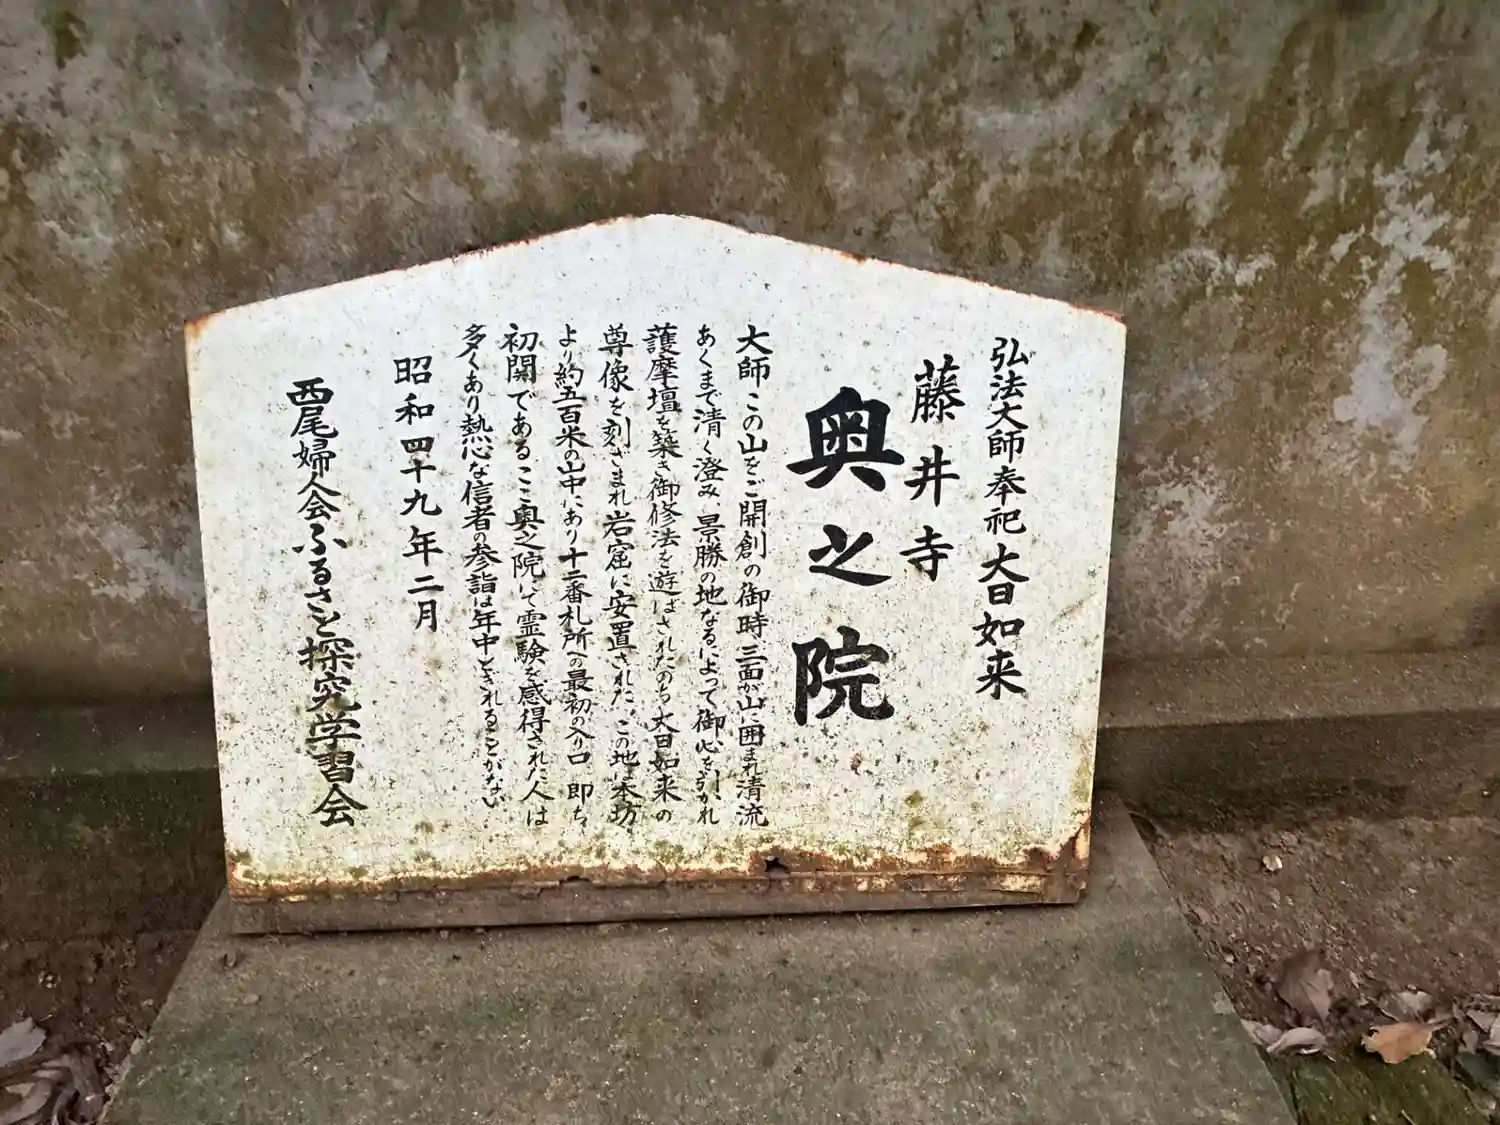 弘法大師奉祀大日如来
藤井寺
奥之院
大師この山をご開創の御時、三面が山に囲まれ清流
あくまで清く澄み、景勝の地なるによって御心を引かれ
護摩壇を築き御修法を遊ばされたのち大日如来の
尊像を刻ざまれ岩窟に安置された。この地は本坊
より約五百米の山中にあり十二番札所への最初の入り口 即ち
初関であるここ奥之院にて霊験を感得された人は
多くあり熱心な信者の参詣は年中ときれることがない
昭和四十九年二月
西尾婦人会ふるさと探究学習会